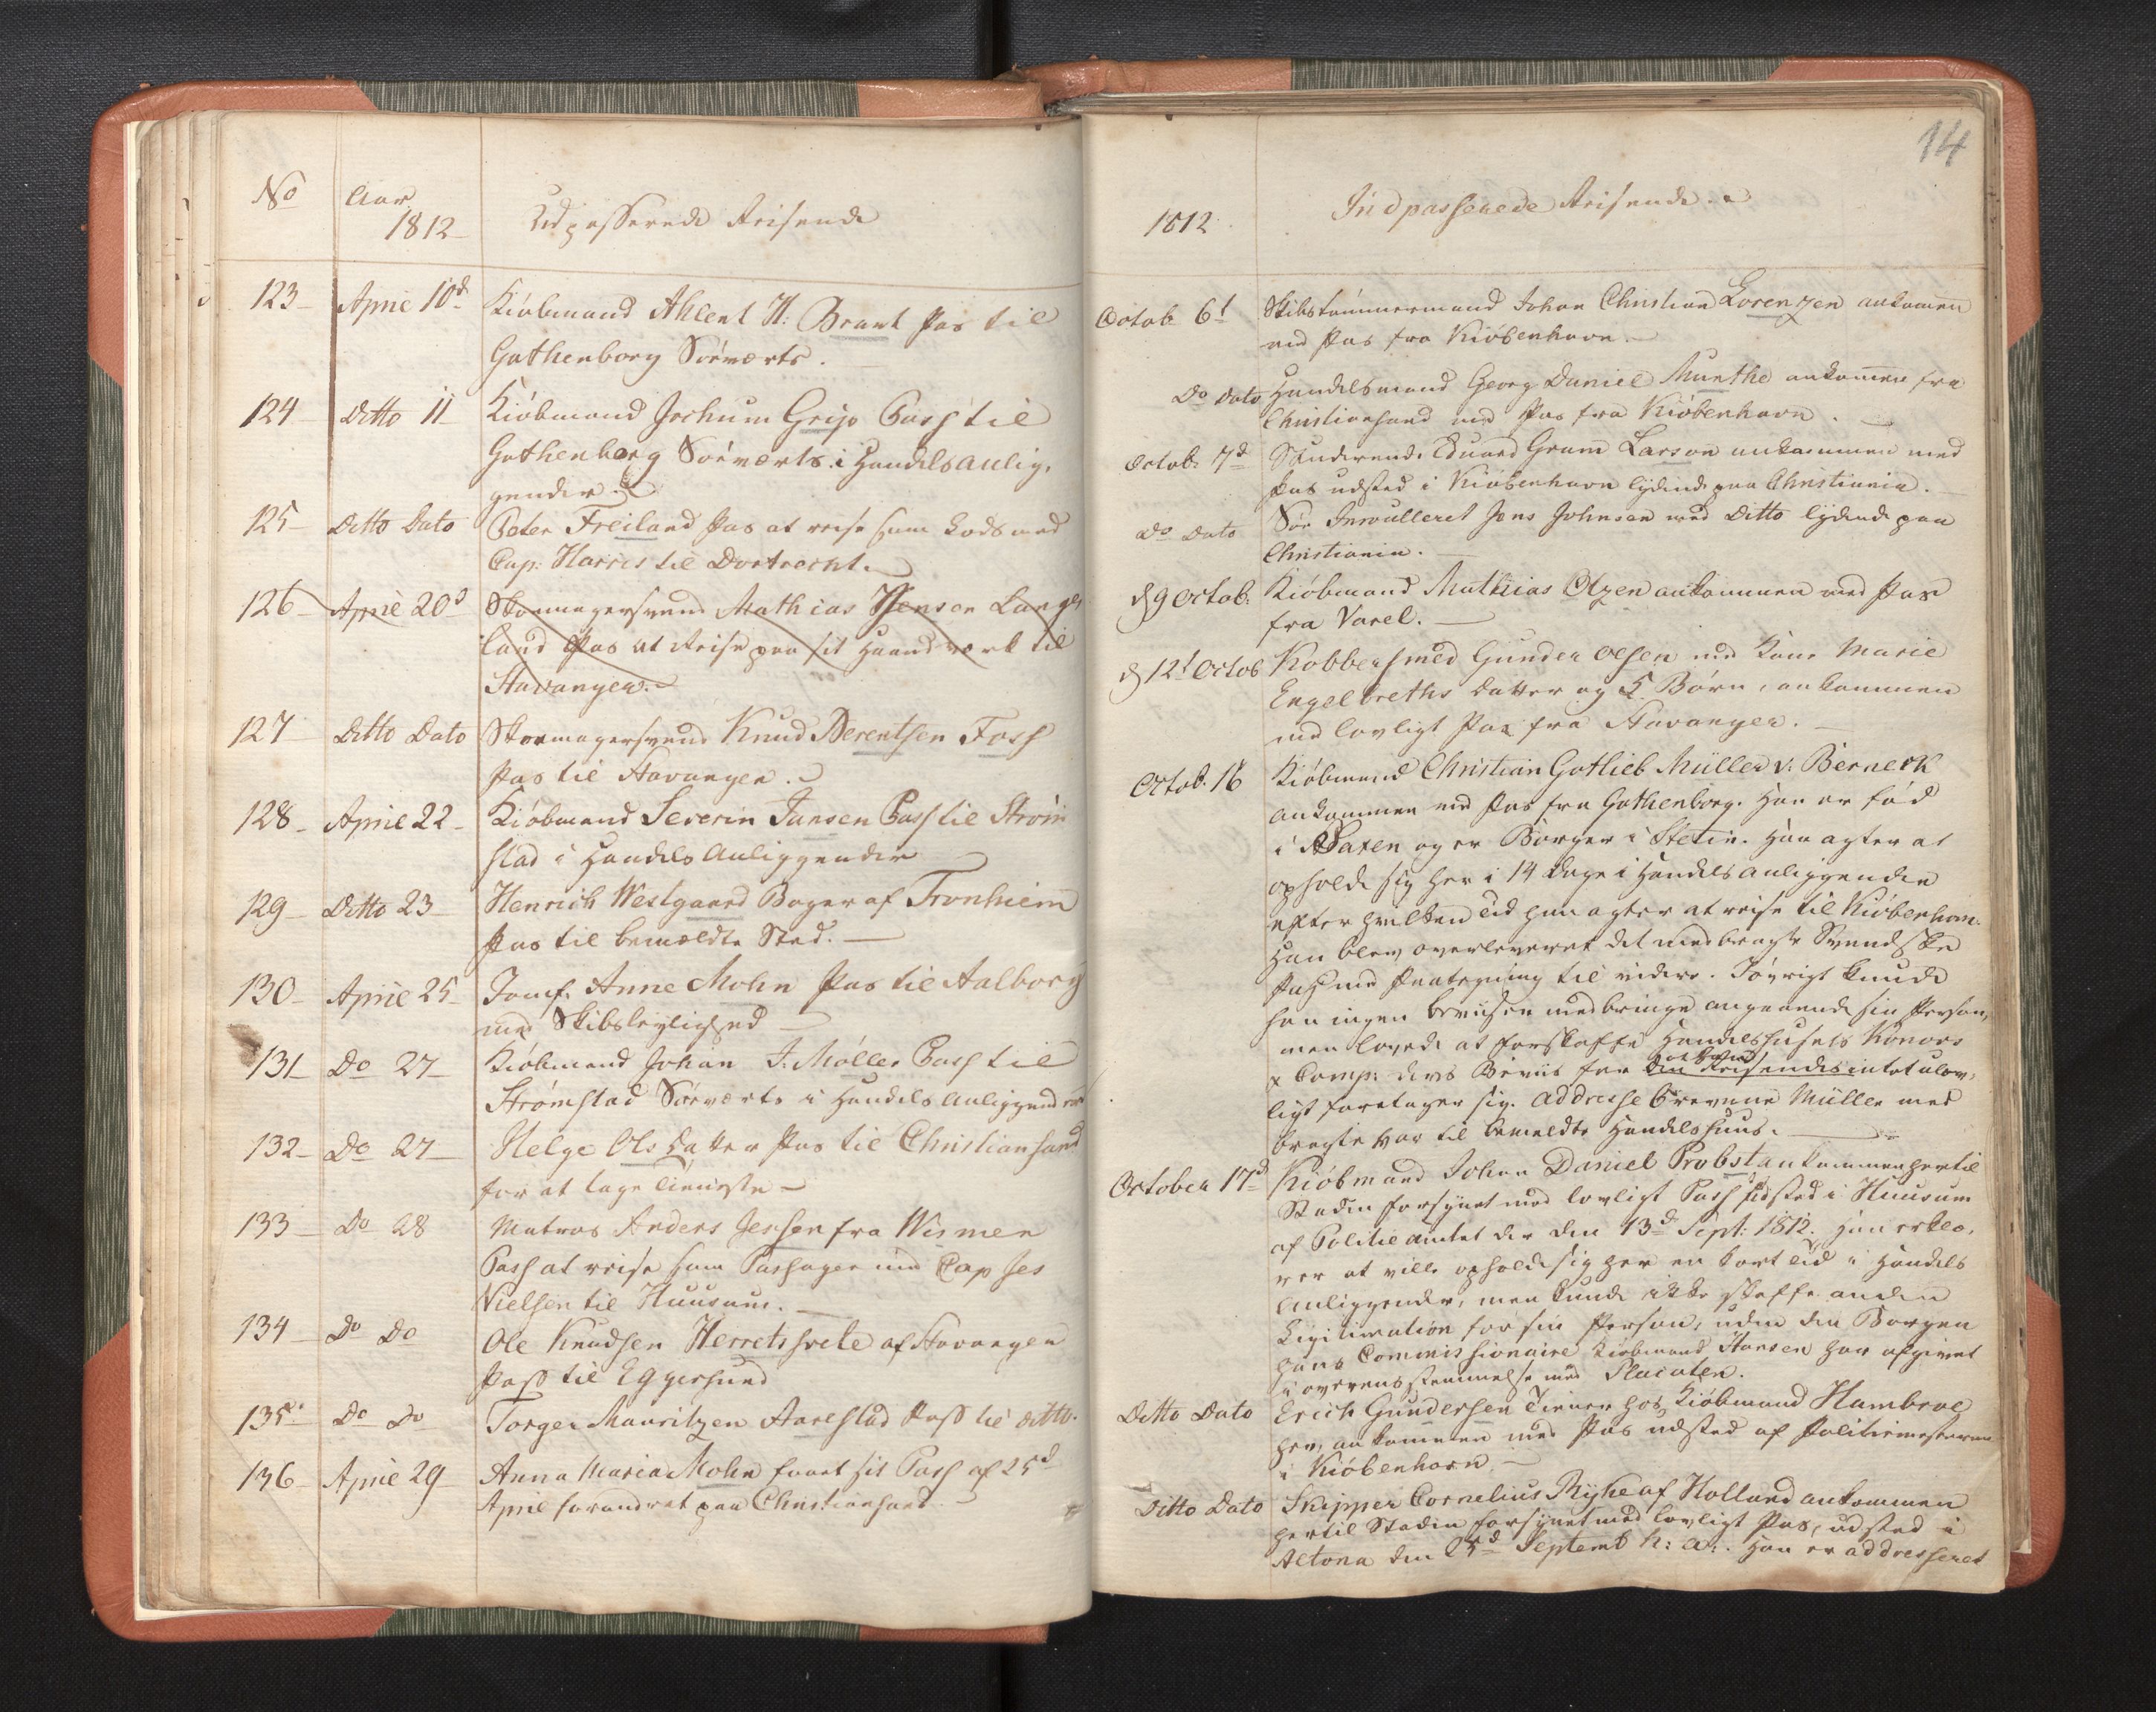 No Aar 1812 Udpasserede Reisende
123 April 10d Kiöbmand Ahlert H: Brant Pas til
Gothenborg Söeværts.
124 Ditto 11 Kiöbmand Jochum Grip Pass til
Gothenborg Söeværts i Handels Anlig-
gender.
125 Ditto Dato Peter Freiland Pas at reise som Lods med
Cap: Harris til Dortrecht.
126 April 20d Skoemagersvend Mathias Jensen Lange
land Pas at Reise paa sit Haandværk til
Stavanger.
127 Ditto Dato Skoemagersvend Knud Berentsen Foss
Pas til Stavanger.
128 April 22 Kiöbmand Severin Jansen Pass til Ström
stad i Handels Anliggender
129 Ditto 23 Henrich Westgaard Bager af Tronhiem
Pas til bemældte Sted.
130 April 25 Jomf. Anne Mohn Pas til Aalborg
med Skibsleylighed
131 Do 27 Kiöbmand Johan J. Møller Pass til
Strömstad Söeværts i Handels Anliggender
132 Do 27 Helge Ols Datter Pas til Christiansand
for at tage Tieneste
133 Do 28 Matros Anders Jessen fra Wismer
Pass at reise som Passager med Cap Jes
Nielsen til Huusum.
134 Do Do Ole Knudsen af Stavanger
Pass til Eggersund
135 Do Do Torger Mauritzen Aarestad Pass til ditto.
136 April 29 Anna Maria Mohn faaet sit Pass af 25d
April forandret paa Christiansand
14
1812 Indpasserede Reisende
Octob 6t Skibstömmermand Johan Christian Lorenzen ankommen
med Pas fra Kiöbenhavn
Do Dato Handelsmand Georg Daniel Munthe ankommen fra
Christiansand med Pas fra Kiöbenhavn.
Octob. 7d Studerende Eduard Gram Larson ankommen med
Pas udsted i Kiöbenhavn lydende paa Christiania.
Do Dato Söe Jens Johnsen med Ditto lydende paa
Christiania.
d 9 Octob. Kiöbmand Mathias Olzen ankommen med Pas
fra Varel.
d 12t Octob Kobbersmed Gunder Olsen med Kone Marie
Engelbreths Datter og 5 Börn, ankommen
med lovligt Pas fra Stavanger.
Octob. 16 Kiöbmand Christian Gotlieb Müller v: Berneck
ankommen med Pas fra Gothenborg. Han er föd
i Saxen og er Borger i Stetin. Han agter at
opholde sig her i 14 Dage i Handels Anliggender
efter hvilken Tid han agter at reise til Kiöbenhavn.
Han blev overleveret det medbragte Svendske
Pas med Paategning til videre. Iövrigt kunde
han ingen Beviser medbringe angaaende sin Person,
men lovede at forskaffe Handelshusets Konows
& Comp: deres Beviis for den Reisendes intet ulov-
ligt foretager sig. Addresse Brevene Müller med
bragte var til bemeldte Handelshuus.
October 17d Kiöbmand Johan Daniel Probst ankommen hertil
Staden forsynet med lovligt Pass udsted i Huusum
af Politie Amtet der den 13d Sept: 1812. Han erklæ-
rer at ville opholde sig her en kort Tid i Handels
Anliggender, men kunde ikke skaffe anden
Legitimation for sin Person, uden den Borgen
hans Commissionaire Kiöbmand Hansen har afgivet
i overensstemmelse med Placaten.
Ditto Dato Erich Gundersen Tiener hos Kiöbmand Hambroe
her, ankommen med Pas udsted af Politimesteren
i Kiöbenhavn.
Ditto Dato Skipper Cornelius Ryke af Holland ankommen
hertil Staden forsynet med lovligt Pas, udsted i
Altona den 25d Septemb h: a:. Han er addresseret